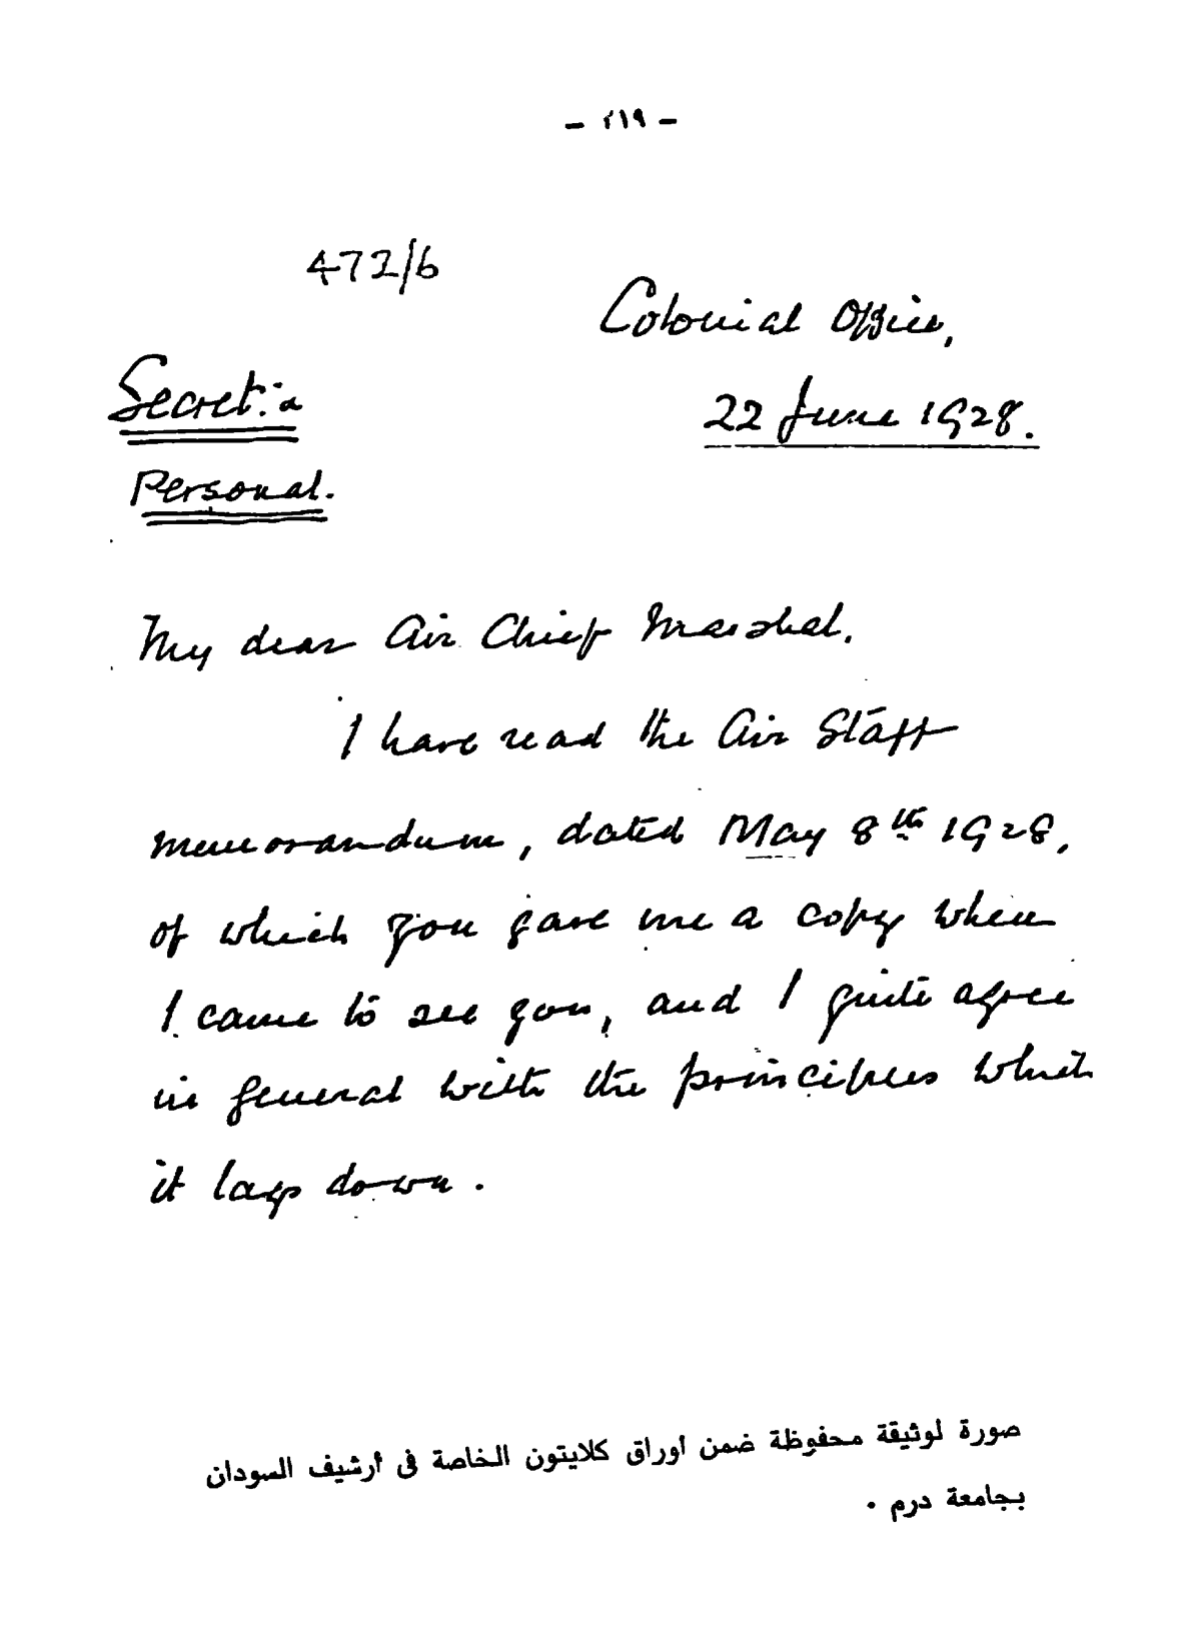 - ٢١٩ -
472/6
Colonial Office,
Secret: &
22 June 1928.
Personal.
My dear Air Chief Marshal,
I have read the Air Staff
memorandum, dated May 8th 1928,
of which you gave me a copy when
I came to see you, and I quite agree
in general with the principles which
it lays down.
صورة لوثيقة محفوظة ضمن اوراق كلايتون الخاصة فى أرشيف السودان
بجامعة درم ٠